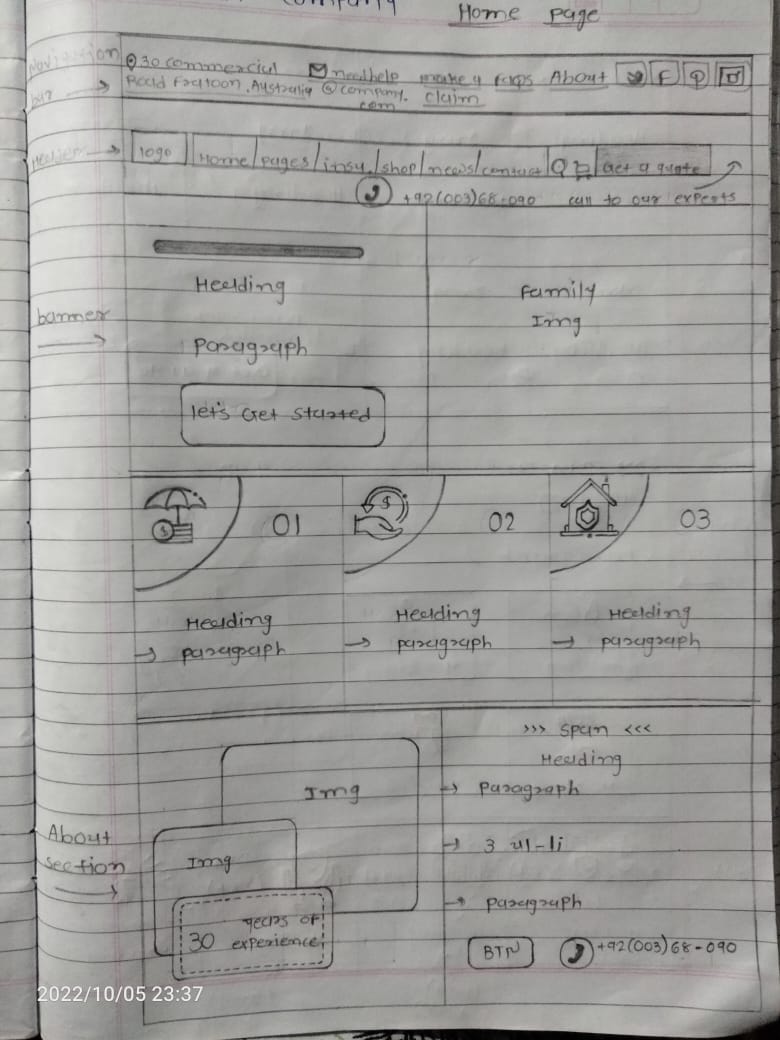 company
Home page
Navigation
bar
30 commercial needhelp make a faqs About F
Road Fratoon, Australia @company. claim
com
Header
logo Home/pages/insu./shop/news/contact Get a quote
+92(003)68-090 call to our experts
banner
Heading
Paragraph
let's Get started
Family
Img
$ 01
$ 02
03
Heading
→ paragraph
Heading
→ paragraph
Heading
→ paragraph
About
section
Img
Img
30 years of
experience
>>> Span <<<
Heading
→ Paragraph
→ 3 ul-li
→ paragraph
BTN +92(003)68-090
2022/10/05 23:37